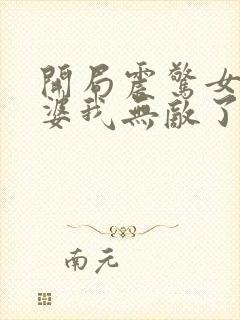 開局震驚女
婆我無敵了
南元